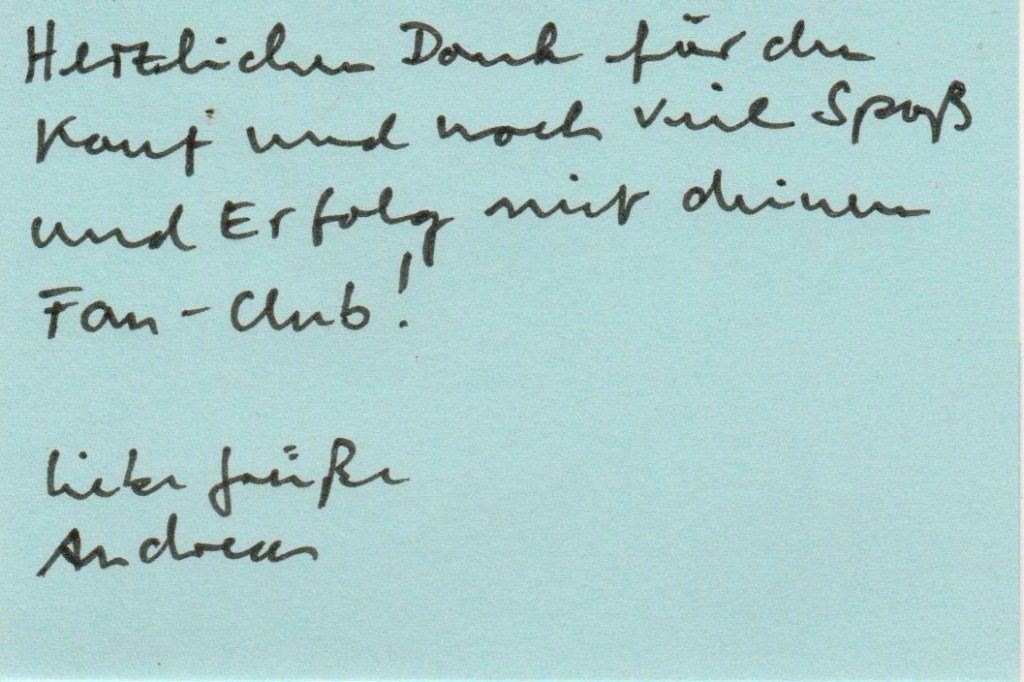 Herzlichen Dank für den
Kauf und noch viel Spaß
und Erfolg mit deinem
Fan-Club!
liebe Grüße
Andreas